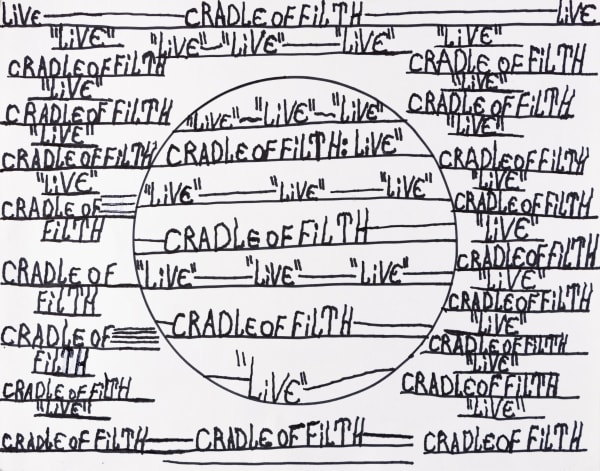 LiVE CRADLE OF FiLTH LiVE
"LiVE"
CRADLE OF FiLTH
"LiVE"
CRADLE OF FiLTH
"LiVE"
CRADLE OF FiLTH
"LiVE"
CRADLE OF
FiLTH
CRADLE OF
FiLTH
CRADLE OF
FiLTH
CRADLE OF FiLTH
"LiVE"
CRADLE OF FiLTH
"LiVE" "LiVE" "LiVE"
"LiVE" ~ "LiVE" ~ "LiVE"
CRADLE OF FiLTH: LiVE"
"LiVE" "LiVE" "LiVE"
CRADLE OF FiLTH
"LiVE" "LiVE" "LiVE"
CRADLE OF FiLTH
"LiVE"
CRADLE OF FiLTH
"LiVE"
CRADLE OF FiLTH
"LiVE"
CRADLE OF FiLTH
"LiVE"
CRADLE OF FiLTH
"LiVE"
CRADLE OF FiLTH
"LiVE"
CRADLE OF FiLTH
"LiVE"
CRADLE OF FiLTH
"LiVE"
CRADLE OF FiLTH
"LiVE"
CRADLE OF FiLTH
"LiVE"
CRADLE OF FiLTH